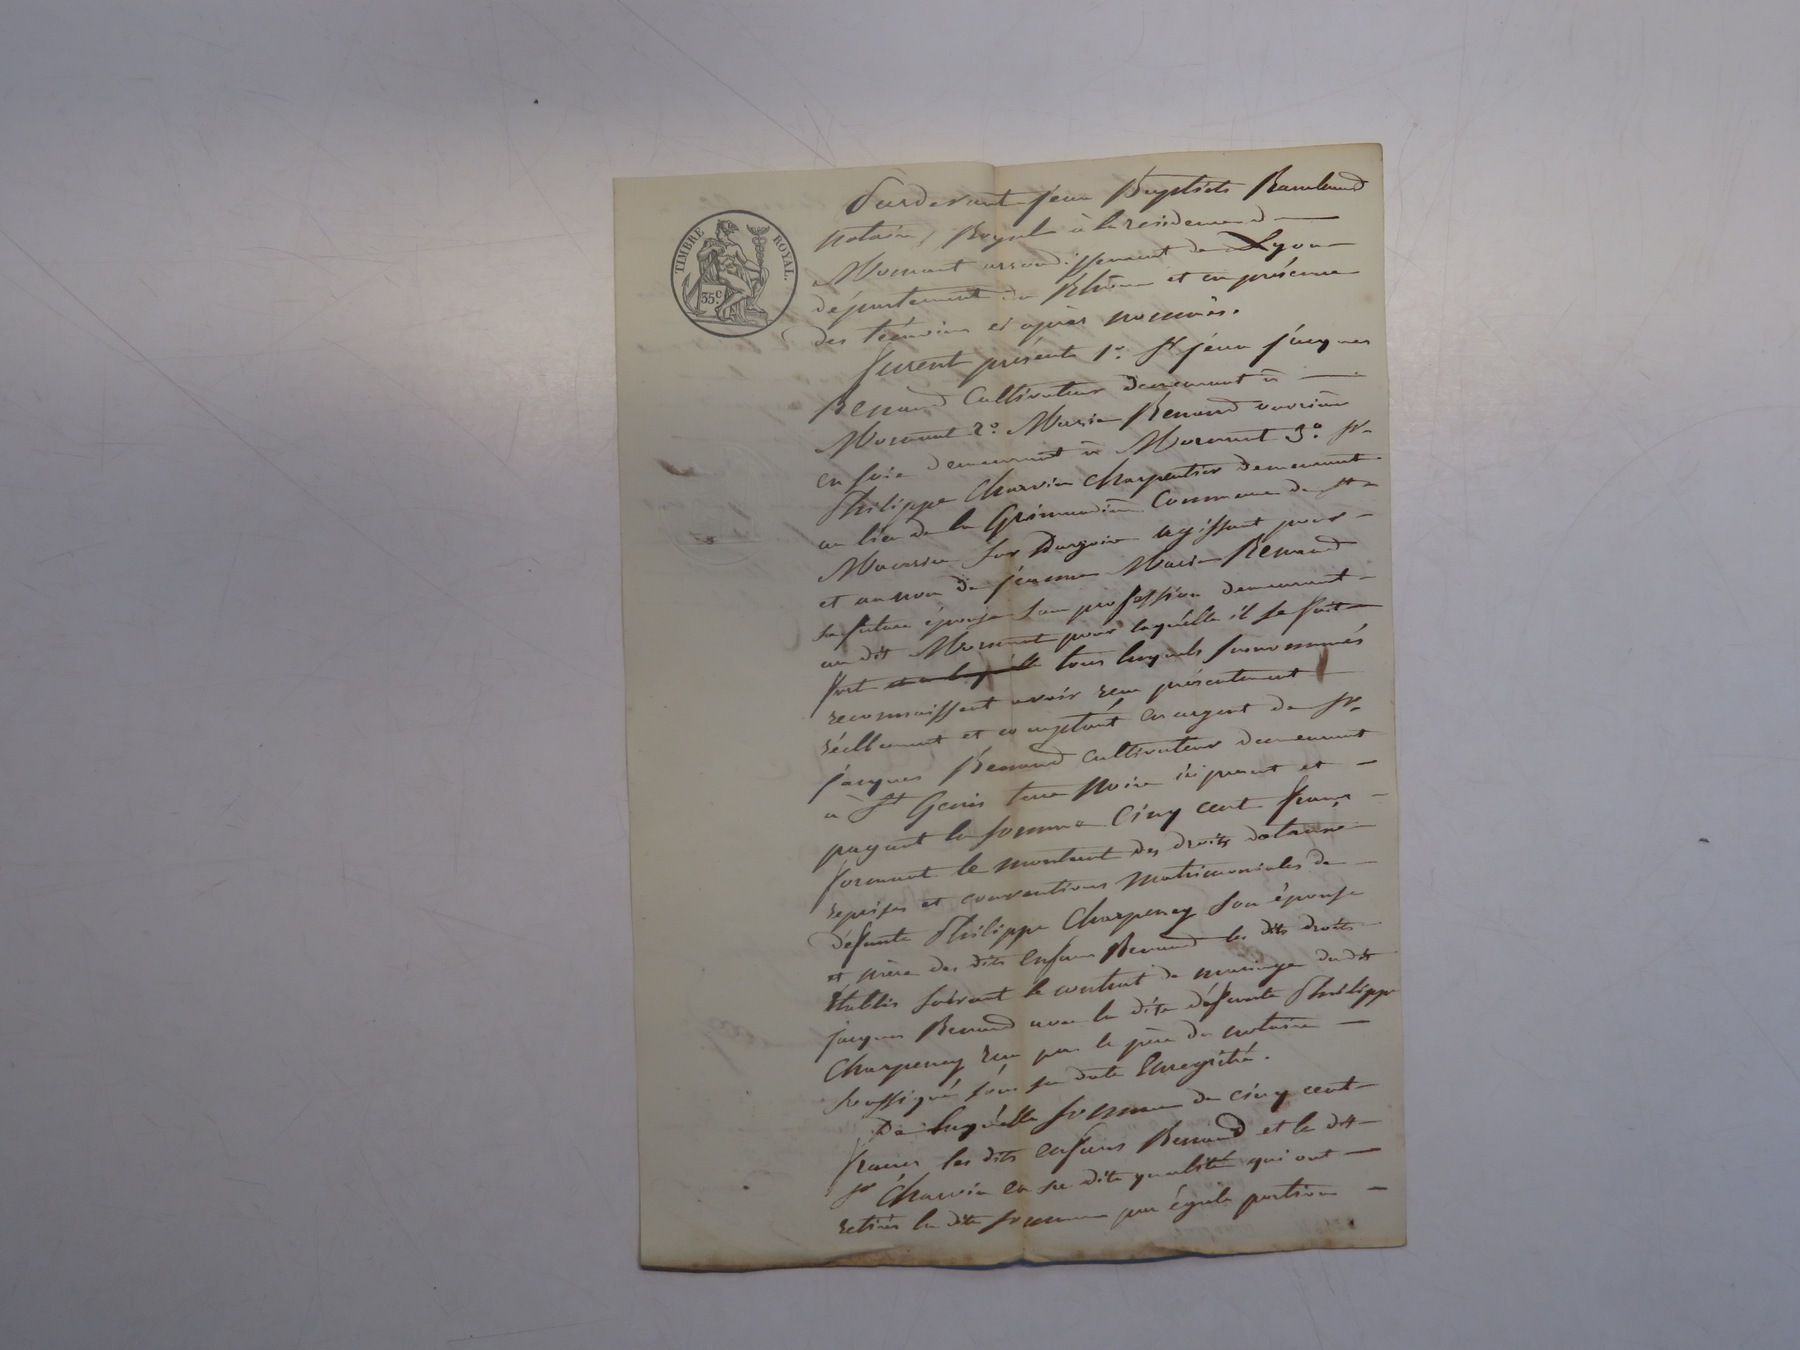 TIMBRE ROYAL.
35 c.
Pardevant jean Baptiste Rambaud
notaire Royal à la residence de
Mornant arrondissement de Lyon
département du Rhône et en présence
des témoins ci après nommés.
furent présents 1.º Sr jean jacques
Benand Cultivateur demeurant à
Mornant 2.º Marie Benand ouvrière
en soie demeurant à Mornant 3.º Sr
Philippe Charvin Charpentier demeurant
au lieu de la Commune de St
Maurice sur Dargoire agissant pour
et au nom de jeanne Marie Benand
sa future épouse sans profession demeurant
au dit Mornant pour laquelle il se fait
fort tous lesquels susnommés
reconnaissent avoir reçu présentement
réellement et comptant en argent de Sr
jacques Benand cultivateur demeurant
à St Genis terre Noire ici présent et
payant la somme Cinq cent francs
formant le montant des droits dotaux
reprises et conventions matrimoniales de
défunte Philippe Charpenay son épouse
et mère des dits enfans Benand les dits droits
établis suivant le contrat de mariage du dit
jacques Benand avec la dite défunte Philippe
Charpenay reçu par le père du notaire
soussigné sous sa date Enregistré.
De laquelle somme de cinq cent
francs les dits enfans Benand et le dit
Sr Charvin en sa dite qualité qui ont
retirés la dite somme par égale portion